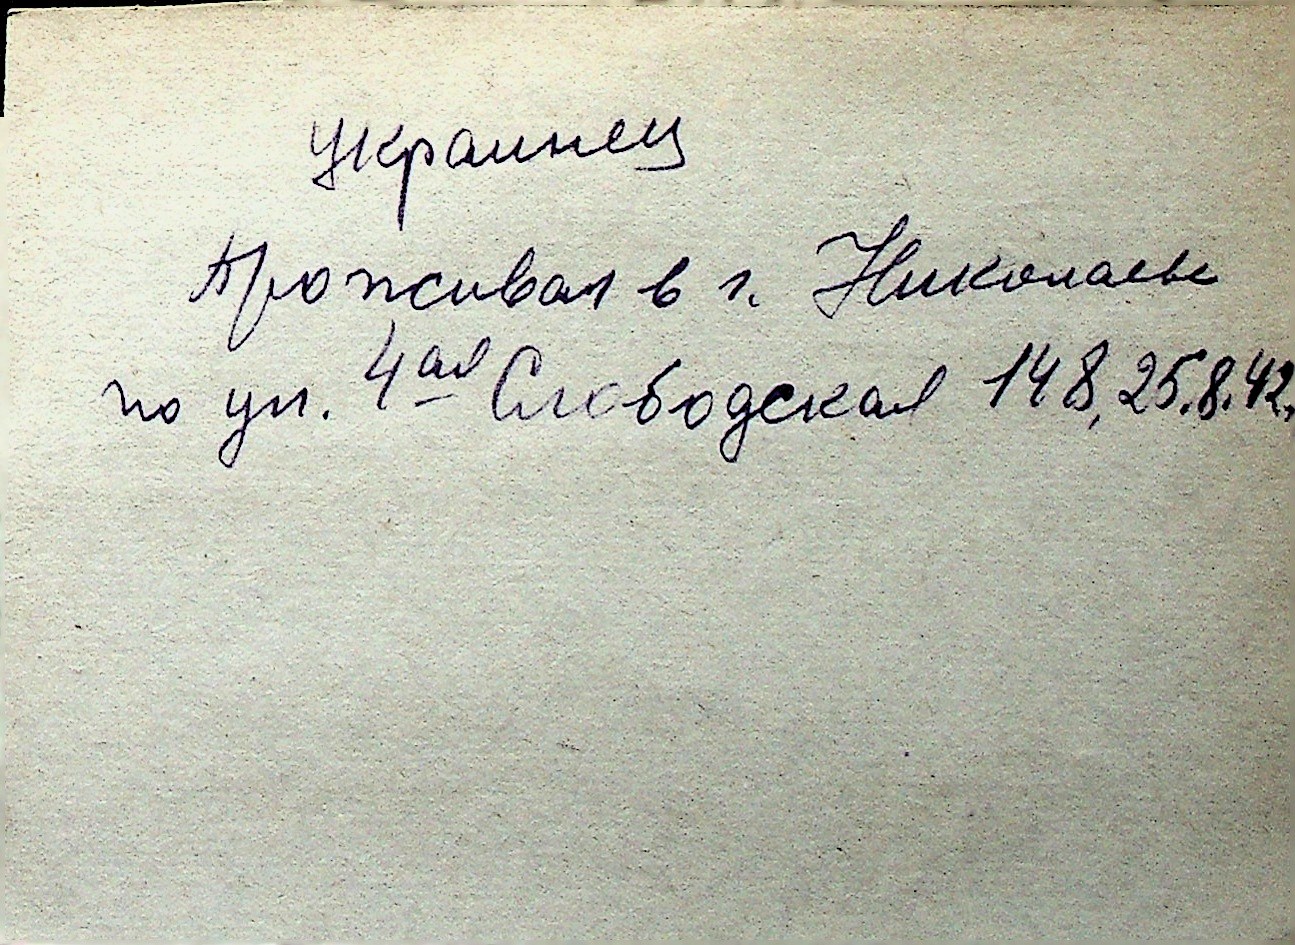 Украинец
Проживал в г. Николаеве
по ул. 4ая Слободская 148, 25.8.42.